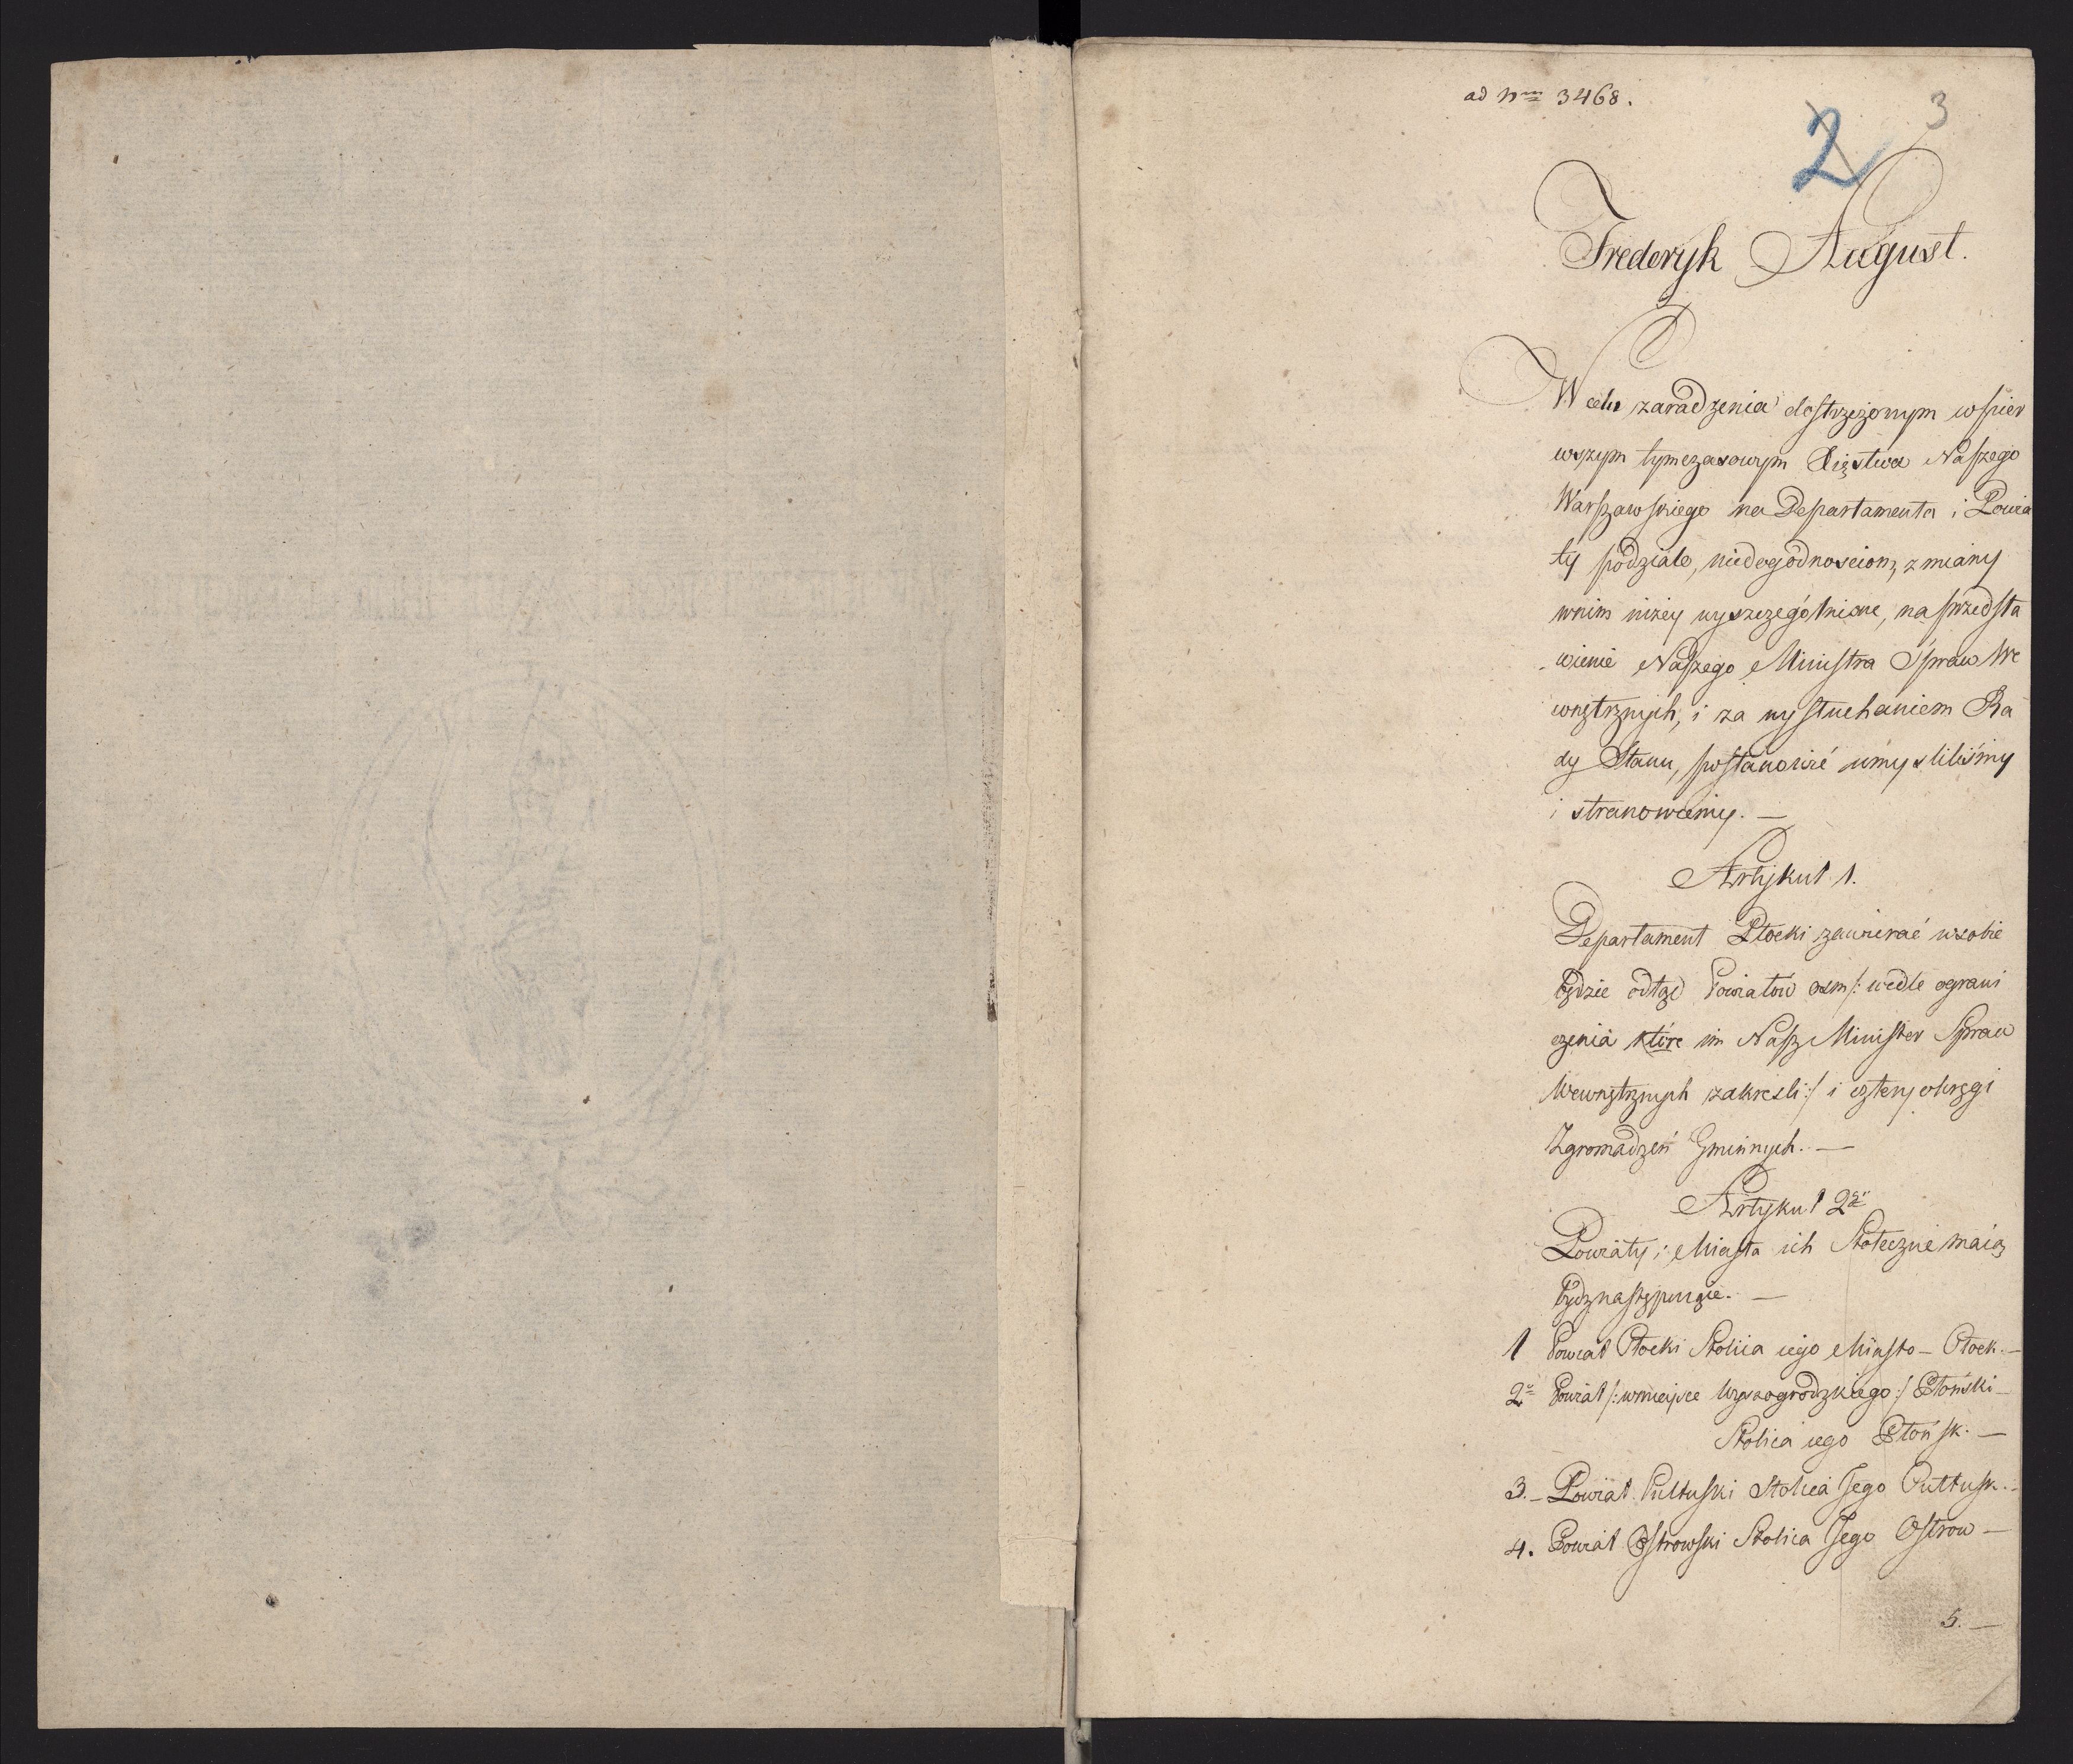 ad Nrm 3468.
2 3
Frederyk August.
W celu zaradzenia dostrzeżonym w pier
wszym tymczasowym Xięstwa Naszego
Warszawskiego na Departamenta i Powia
ty podziale, niedogodnościom, zmiany
w nim niżey wyszczególnione, na przedsta
wienie Naszego Ministra Spraw We
wnętrznych, i za wysłuchaniem Ra
dy Stanu, postanowić umyśliliśmy
i stanowiemy. —
Artykuł 1.
Departament Płocki zawierać w sobie
będzie odtąd Powiatów osm /: wedle ograni
czenia które im Nasz Minister Spraw
Wewnętrznych zakreśli :/ i cztery okręgi
Zgromadzeń Gminnych. —
Artykuł 2gi
Powiaty i Miasta ich Stołeczne maią
bydź następuiące. —
1 Powiat Płocki Stolica iego Miasto — Płock. —
2o Powiat /: w mieysce Wyszogrodzkiego :/ Płoński —
Stolica iego Płońsk. —
3. — Powiat Pułtuski Stolica Jego Pułtusk. —
4. Powiat Ostrowski Stolica Jego Ostrow —
5. —